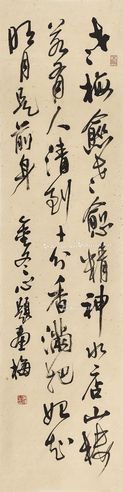 老梅愈老愈精神水店山楼
若有人清到十分香满把始知
明月是前身 金冬心题画梅